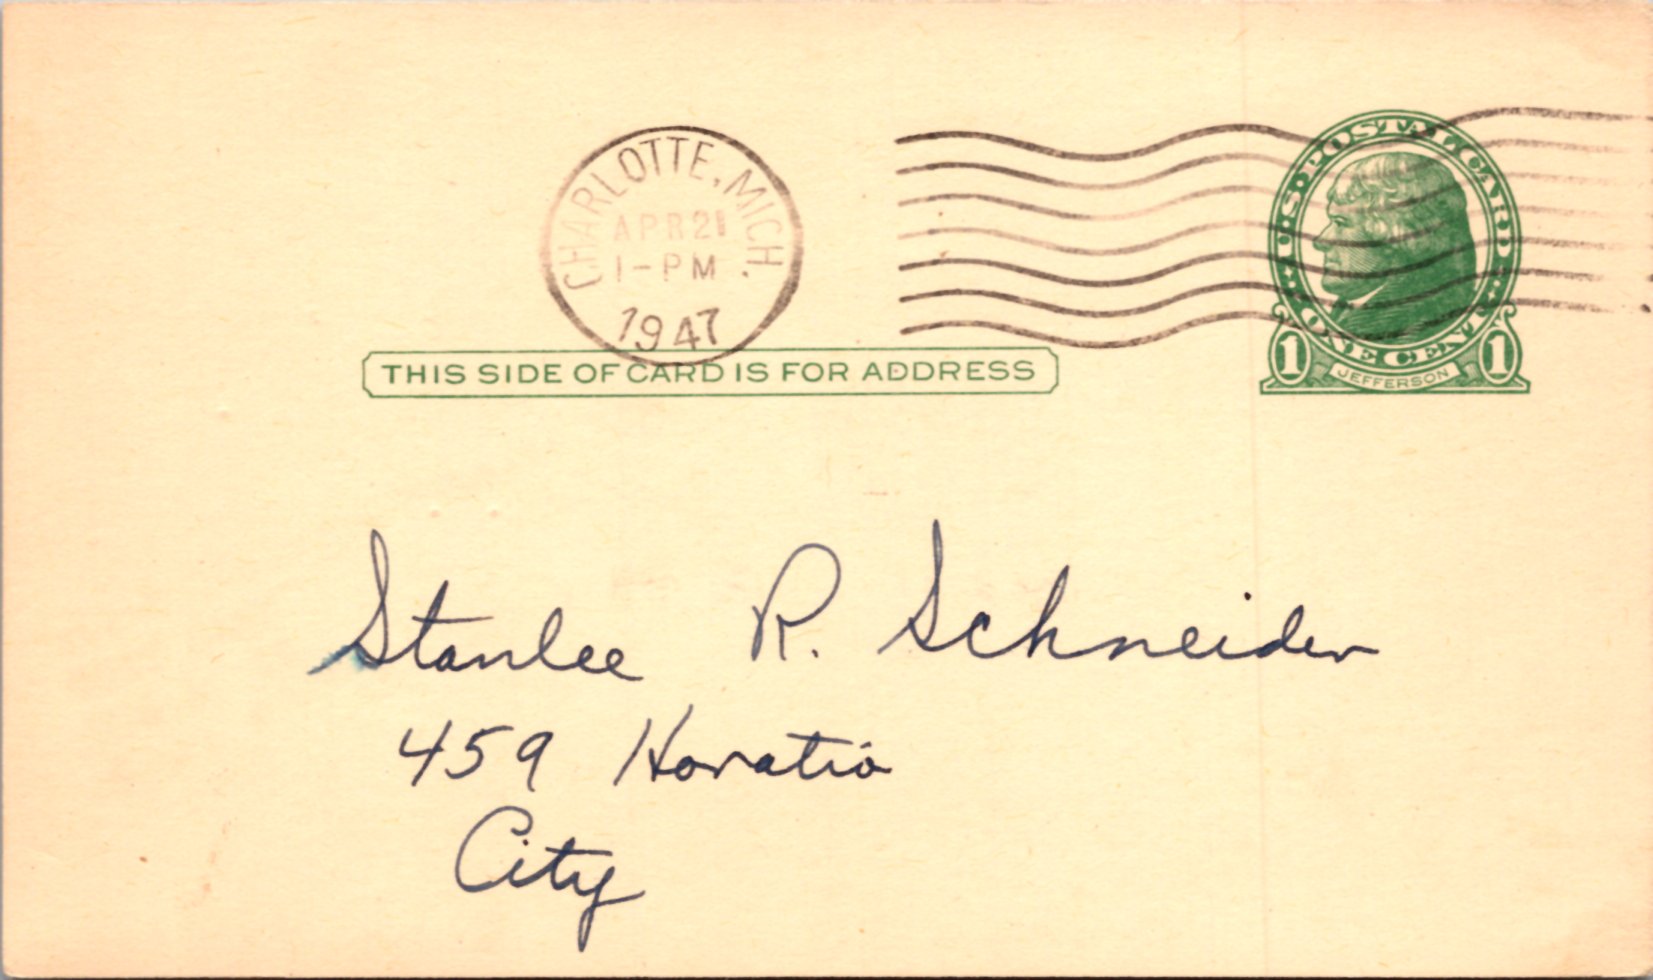 CHARLOTTE, MICH.
APR 21
1-PM
1947
U.S. POSTAL CARD
ONE CENT
1 JEFFERSON 1
THIS SIDE OF CARD IS FOR ADDRESS
Stanlee R. Schneider
459 Horatio
City